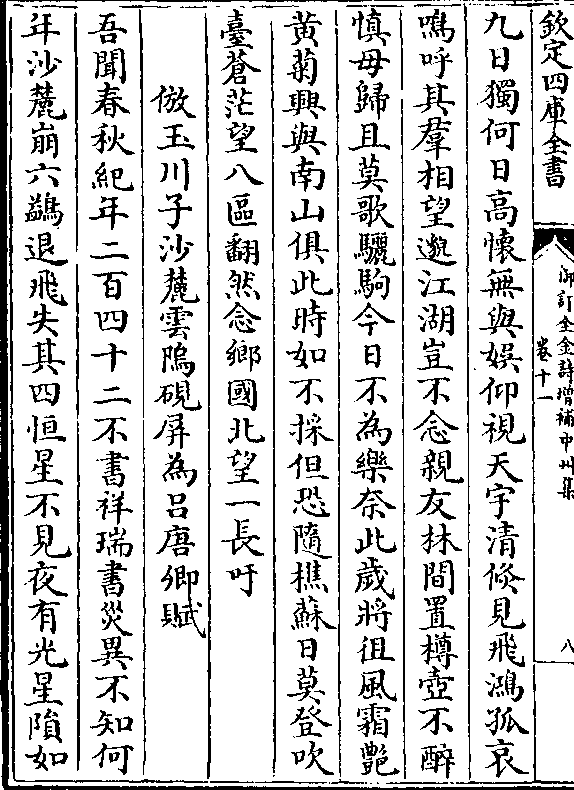 欽定四庫全書
御訂全金詩增補中州集
卷十一
八
九日獨何日高懷無與娯仰視天宇清倐見飛鴻孤哀
鳴呼其羣相望邈江湖豈不念親友林間置樽壺不醉
慎毋歸且莫歌驪駒今日不為樂奈此歲將徂風霜艶
黄菊興與南山俱此時如不採但恐隨樵蘇日莫登吹
臺蒼茫望八區翻然念鄉國北望一長吁
倣玉川子沙麓雲隖硯屏為吕唐卿賦
吾聞春秋紀年二百四十二不書祥瑞書災異不知何
年沙麓崩六鷁退飛失其四恒星不見夜有光星隕如